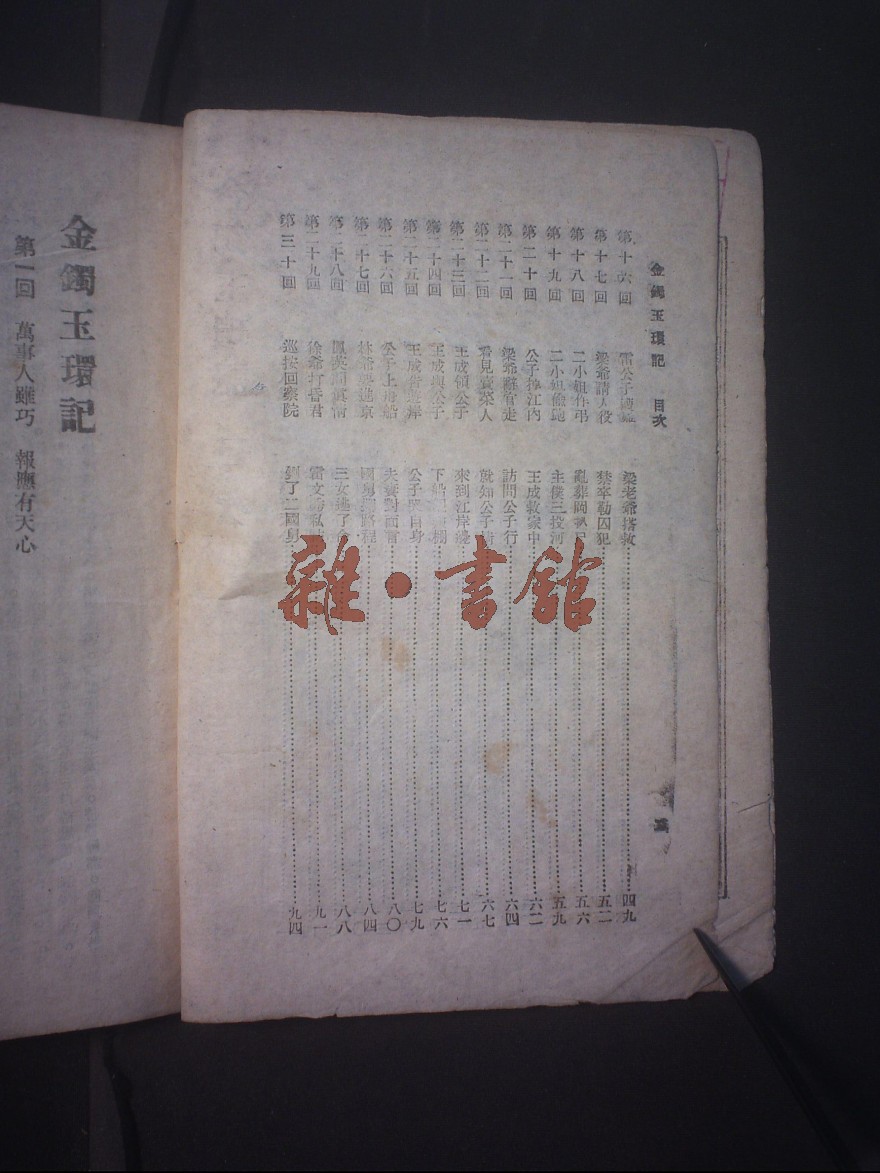 金鐲玉環記 目次
第十六回 雷公子 梁老爺搭救 四九
第十七回 梁爺請人役 禁卒勒囚犯 五二
第十八回 二小姐作弔 亂葬岡 五六
第十九回 二小姐 主僕三投河 五九
第二十回 公子摔江內 王成救 中 六二
第二十一回 梁爺辭官走 訪問公子行 六四
第二十二回 看見賣菜人 就知公子 六七
第二十三回 王成領公子 來到江岸邊 七一
第二十四回 王成與公子 下船 七六
第二十五回 王成 公子 自身 七九
第二十六回 公子上母船 夫妻對面言 八〇
第二十七回 林爺 進京 國舅 路程 八四
第二十八回 鳳英 三女進了 八八
第二十九回 徐爺打昏君 雷文 私 九一
第三十回 巡按回察院 鍘了二國舅 九四
雜·書館
金鐲玉環記
第一回 萬事人雖巧 報應有天心